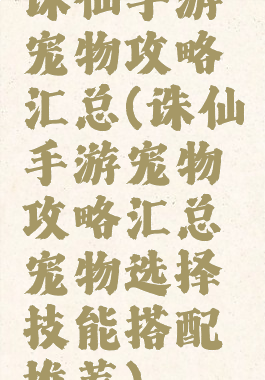 诛仙手游
宠物攻略
汇总(诛仙
手游宠物
攻略汇总
宠物选择
技能搭配
推荐)